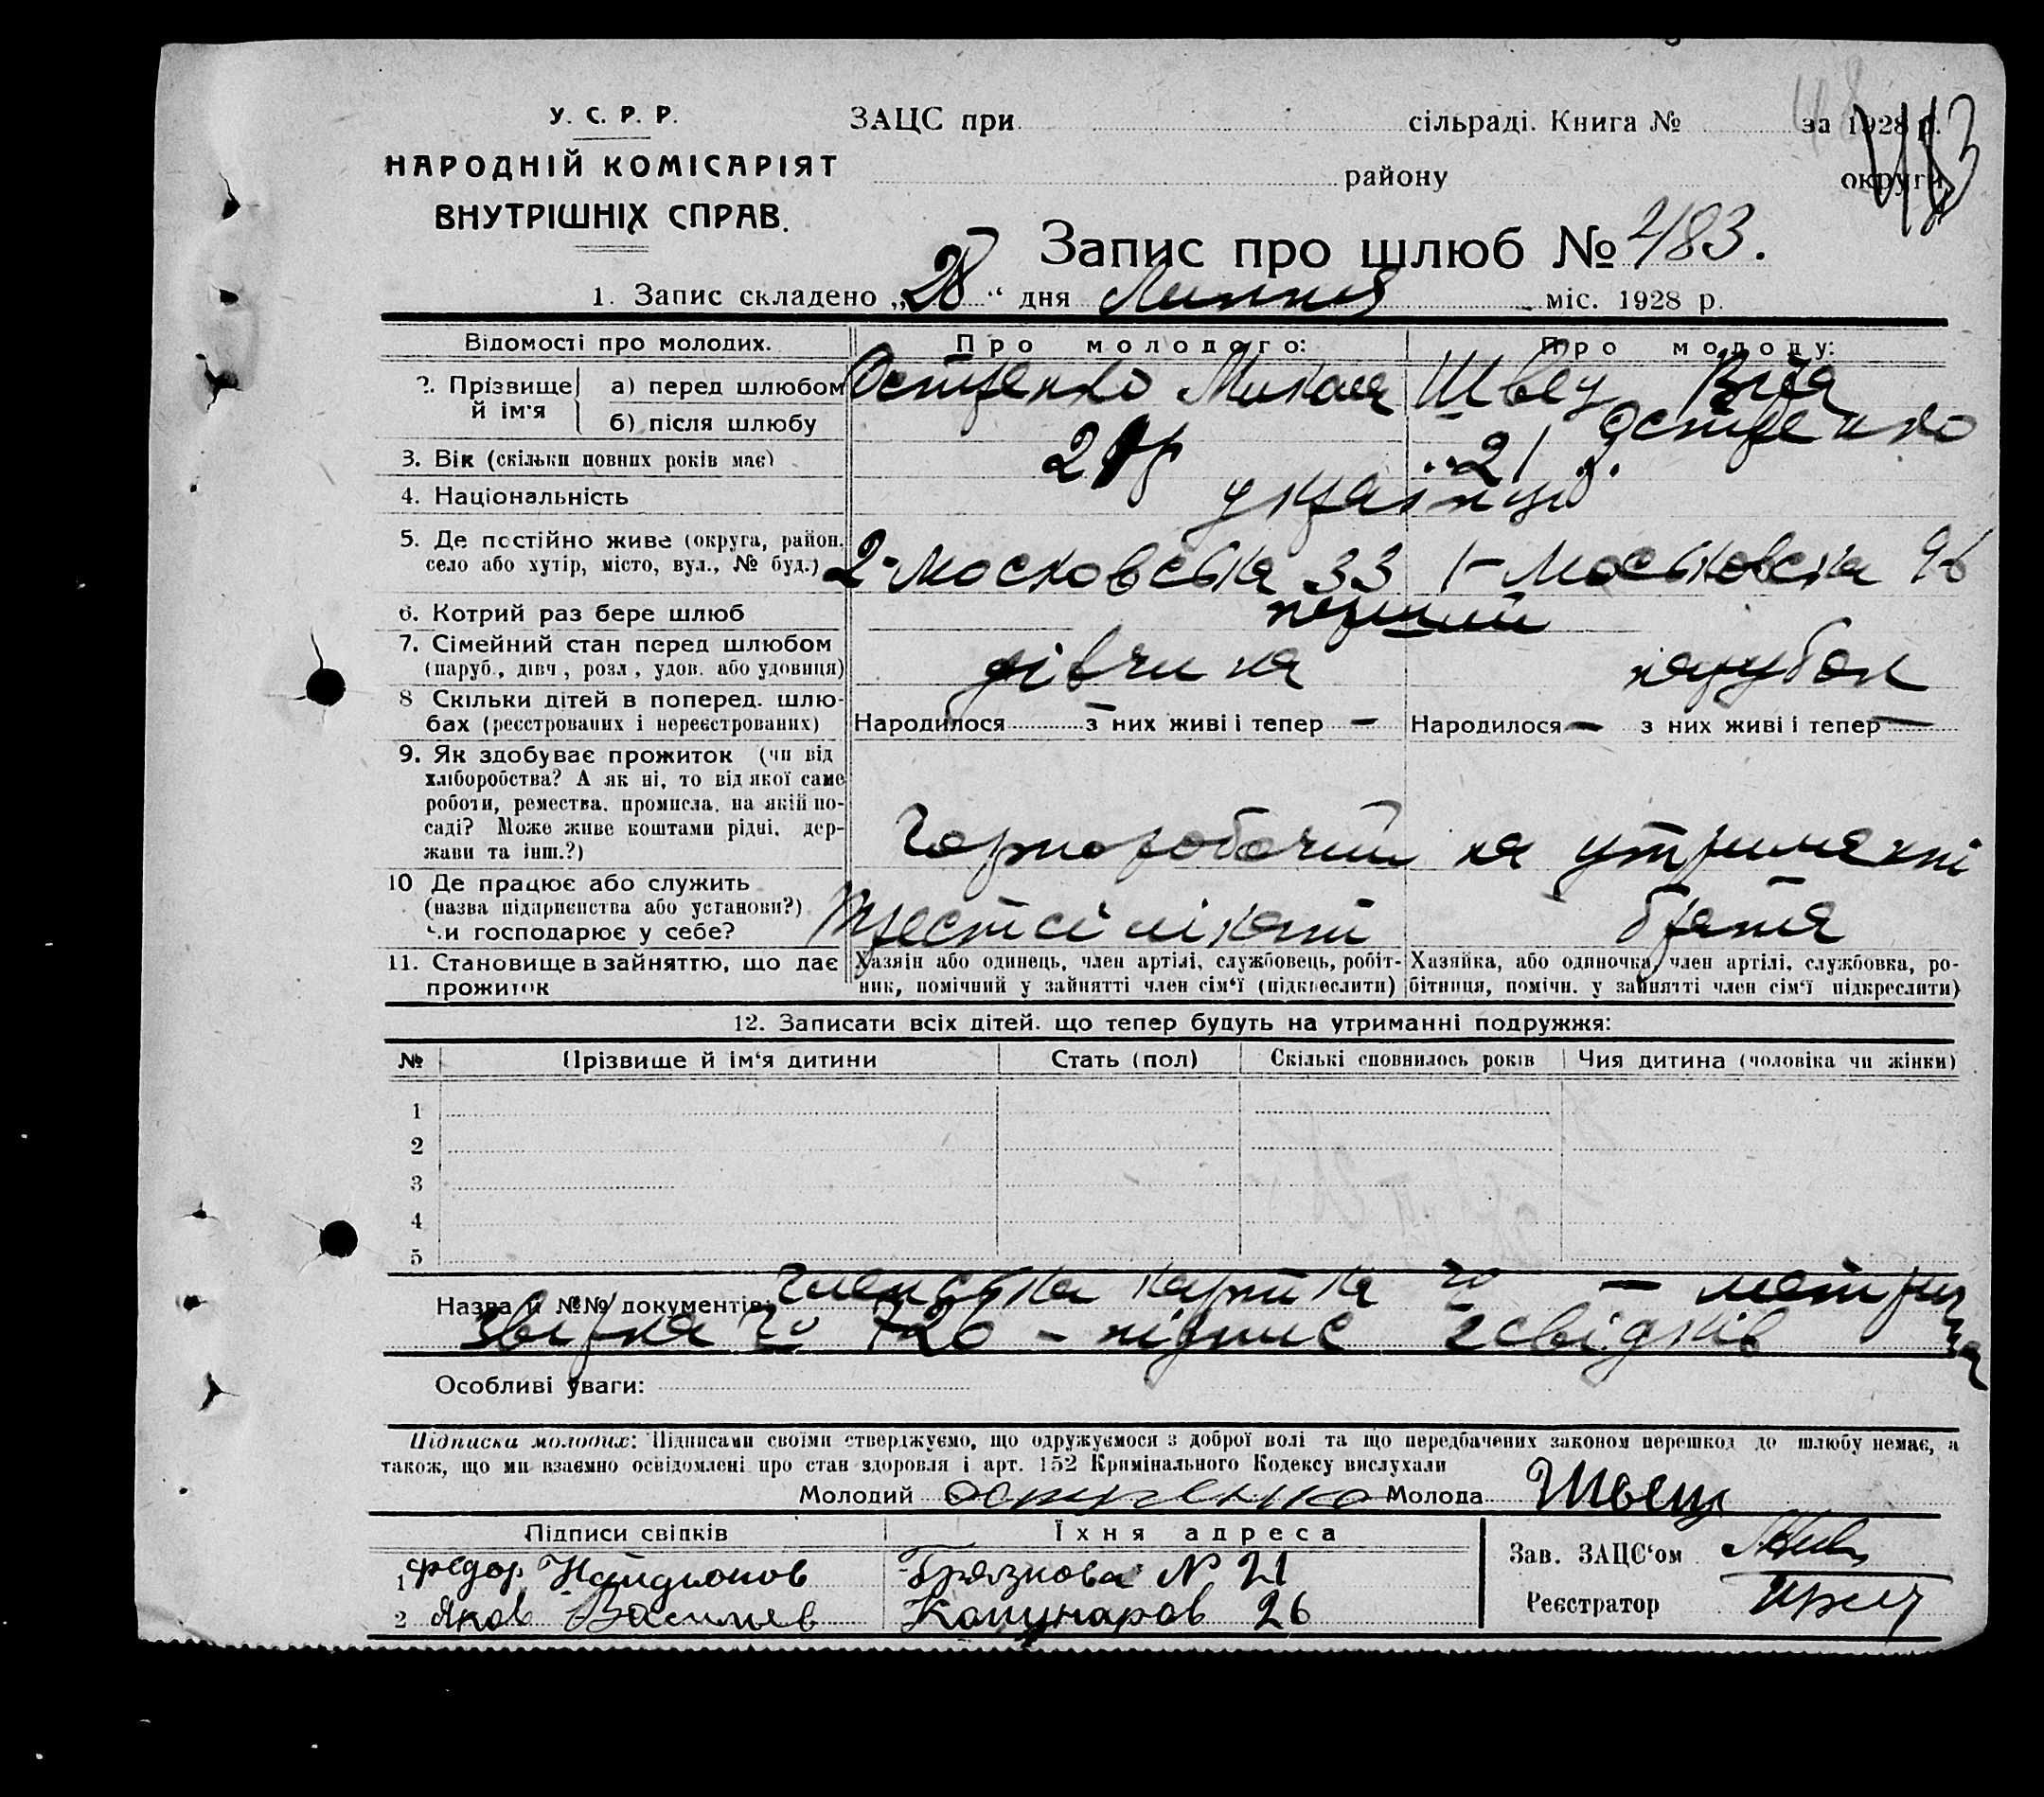 У. С. Р. Р.
НАРОДНІЙ КОМІСАРІЯТ
ВНУТРІШНІХ СПРАВ.
ЗАЦС при сільраді. Книга № за 1928 р.
району округи
483
Запис про шлюб № 483.
1. Запис складено „28" дня Липня міс. 1928 р.
Відомості про молодих. Про молодого: Про молоду:
2. Прізвище й ім'я а) перед шлюбом Остренко Микола Швец Віра
б) після шлюбу Остренко
3. Вік (скільки повних років має) 21 р. 21 р.
4. Національність українці
5. Де постійно живе (округа, район, село або хутір, місто, вул., № буд.) 2-Московська 33 1-Московська 96
6. Котрий раз бере шлюб перший
7. Сімейний стан перед шлюбом (паруб., дівч., розл., удов. або удовиця) дівчина парубок
8 Скільки дітей в поперед. шлюбах (реєстрованих і нереєстрованих) Народилося з них живі і тепер — Народилося — з них живі і тепер —
9. Як здобуває прожиток (чи від
хліборобства? А як ні, то від якої саме
роботи, ремества, промисла, на якій по-
саді? Може живе коштами рідні, дер-
жави та інш.?) Чорноробочий на утриманні
10 Де працює або служить
(назва підприємства або установи?)
чи господарює у себе? брата
11. Становище в зайняттю, що дає прожиток
Хазяїн або одинець, член артілі, службовець, робіт-
ник, помічний у зайнятті член сім'ї (підкреслити)
Хазяйка, або одиночка, член артілі, службовка, ро-
бітниця, помічн. у зайнятті член сім'ї підкреслити)
12. Записати всіх дітей, що тепер будуть на утриманні подружжя:
№ Прізвище й ім'я дитини Стать (пол) Скількі сповнилось років Чия дитина (чоловіка чи жінки)
1
2
3
4
5
Назва й №№ документів: членська картка № — метрична
№ 726 - підпис 2 свідків
Особливі уваги:
Підписки молодих: Підписами своїми стверджуємо, що одружуємося з доброї волі та що передбачених законом перешкод до шлюбу немає, а
також, що ми взаємно освідомлені про стан здоровля і арт. 152 Кримінального Кодексу вислухали
Молодий Остренко Молода Швец
Підписи свідків Їхня адреса
1 Федор Найдионов Грязнова № 21
2 Яков Василиев Комунаров 26
Зав. ЗАЦС'ом
Реєстратор